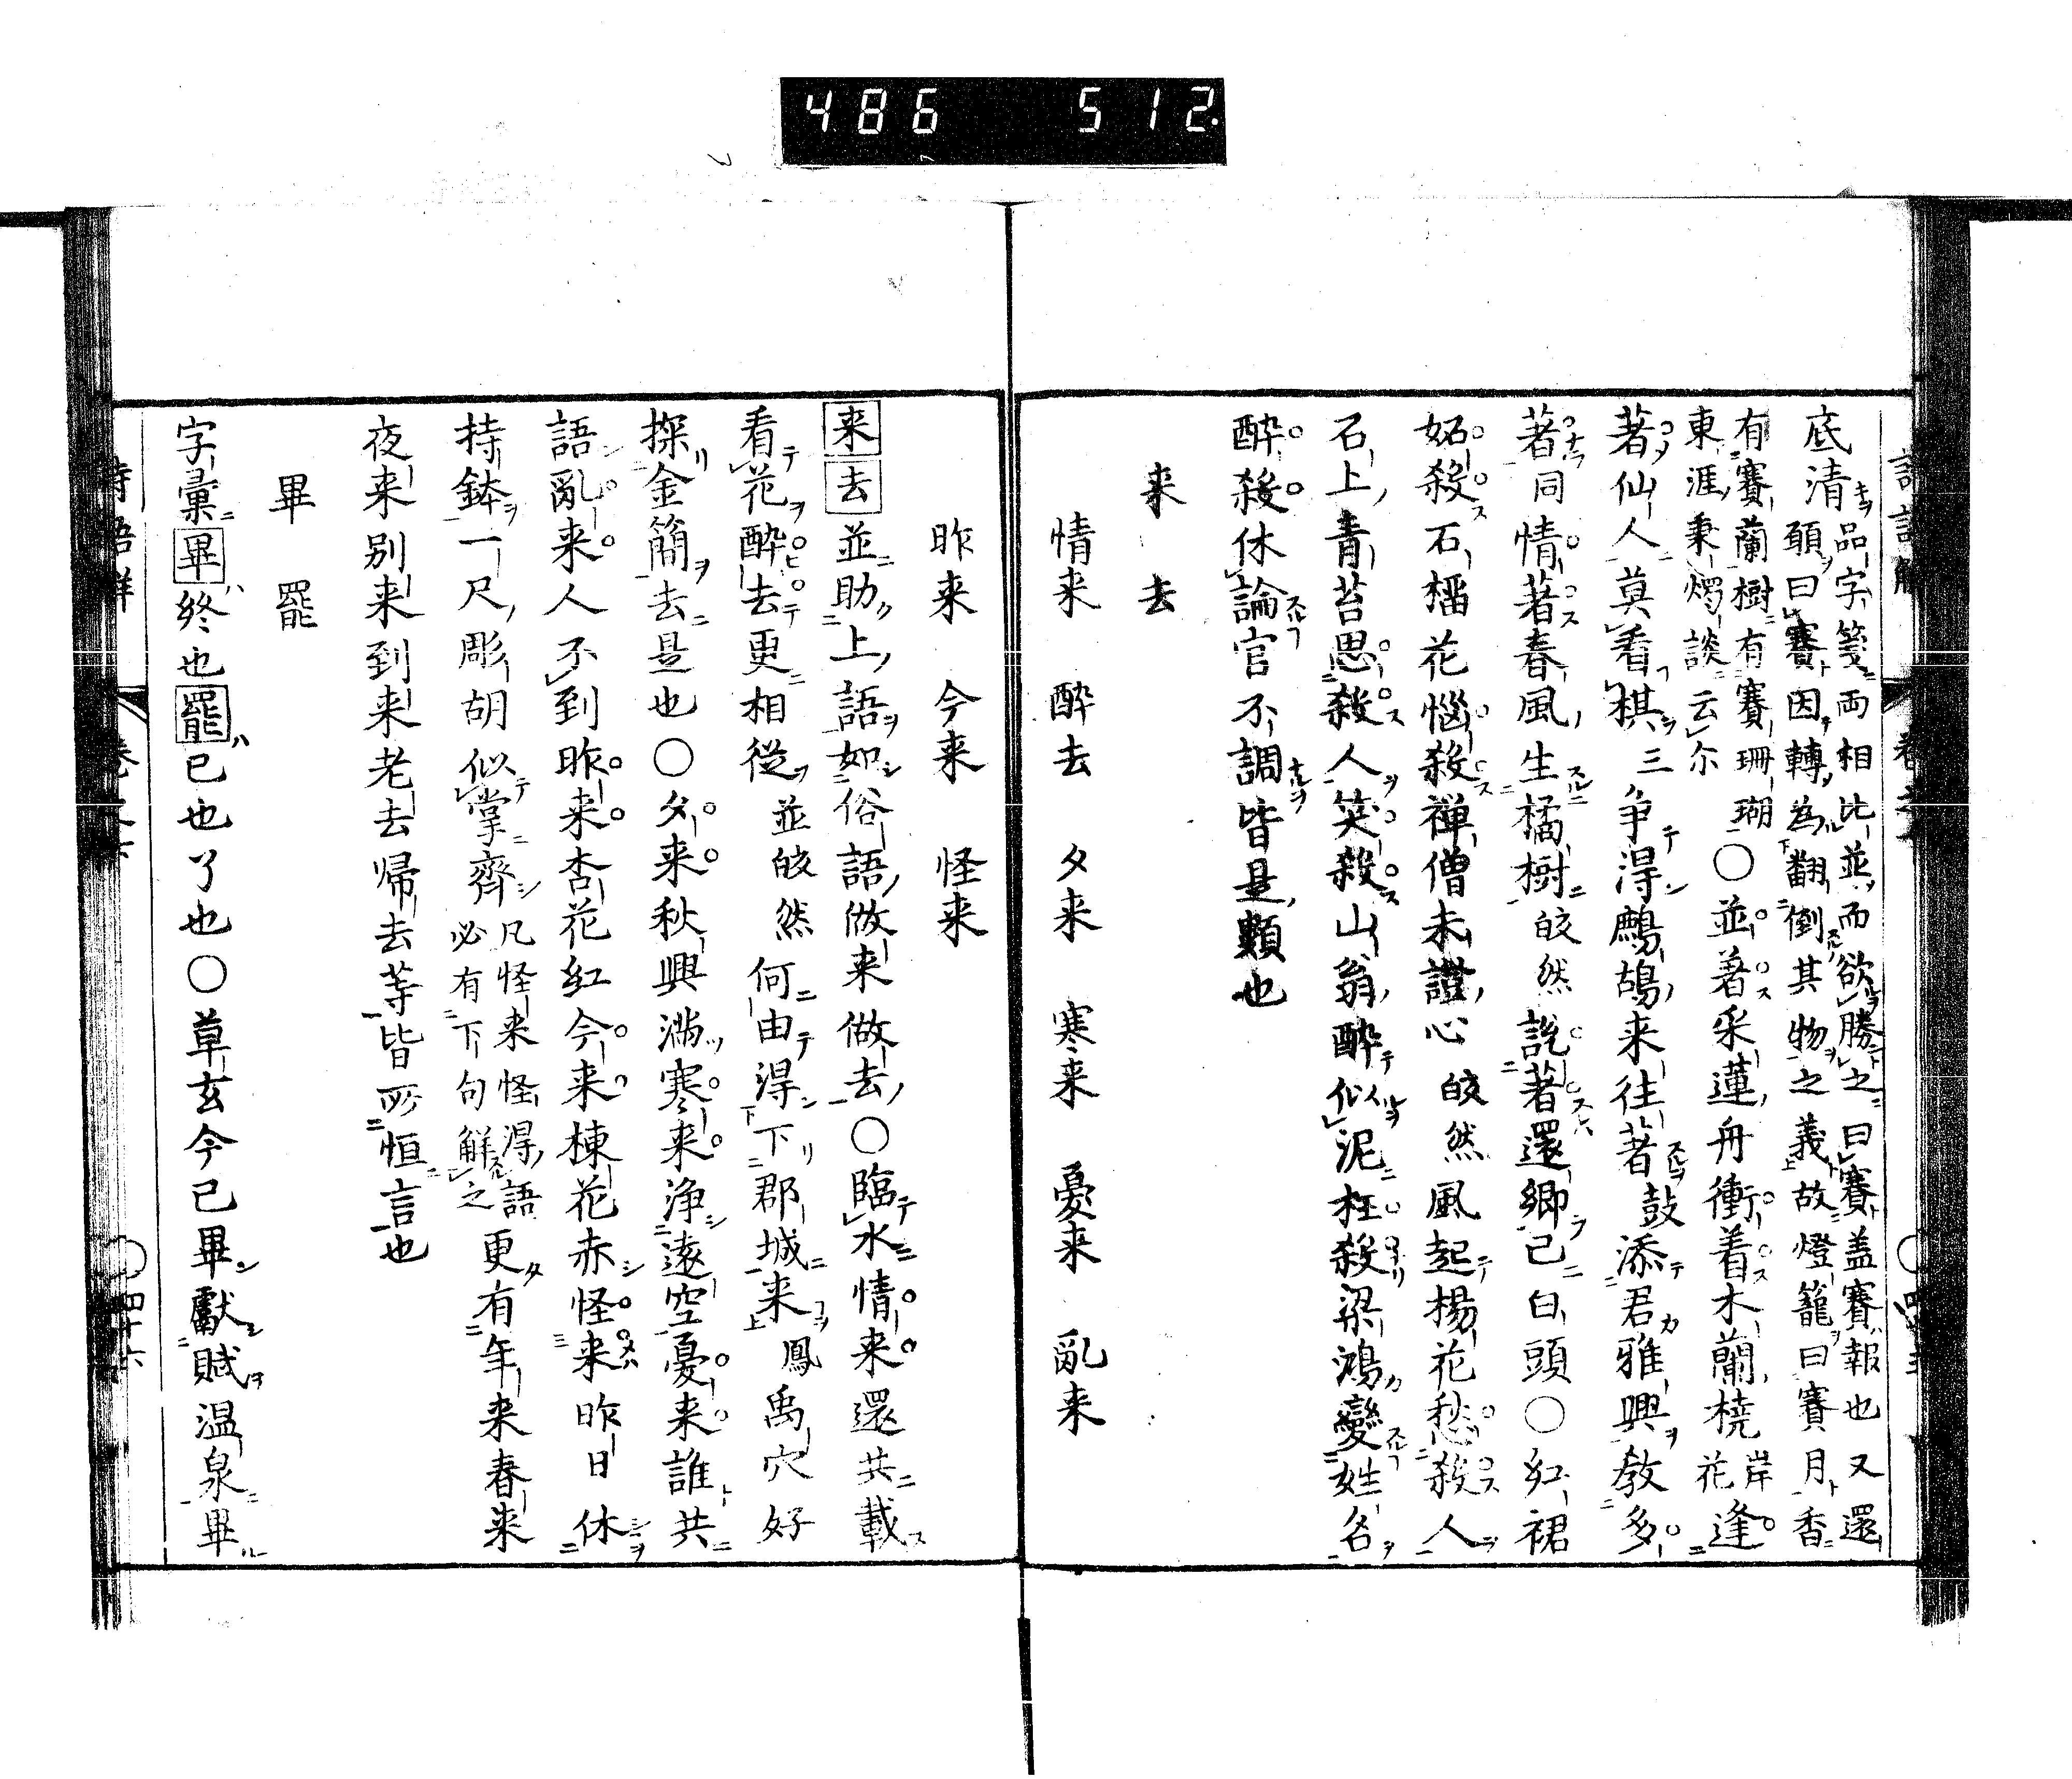 486 512.
底清品字箋両相比並而欲勝之曰賽盖賽報也又還
頤曰賽因轉為翻倒其物之義故燈籠曰賽月香
有賽蘭樹有賽珊瑚○並著采蓮舟衝着木蘭橈岸
東涯秉燭談云尓花逢
著仙人莫看棋三争得鷓鴣来往著鼓添君雅興教多
著同情著春風生橘樹皎然説著還郷已白頭○紅裙
妬殺石榴花惱殺禅僧未證心皎然風起楊花愁殺人
石上青苔思殺人笑殺山翁酔似泥枉殺梁鴻變姓名
酔殺休論官不調皆是類也
来去
情来 酔去 夕来 寒来 憂来 亂来
昨来 今来 怪来
来去並助上語如俗語做来做去○臨水情来還共載
看花酔去更相從並皎然何由得下郡城来鳳禹穴好
探金簡去是也○夕来秋興満寒来浄遠空憂来誰共
語亂来人不到昨来杏花紅今来棟花赤怪来昨日休
持鉢一尺彫胡似掌齊凡怪来怪得語必有下句解之更有年来春来
夜来别来到来老去帰去等皆所恒言也
畢 罷
字彙畢終也罷已也了也○草玄今已畢獻賦温泉畢
詩語解 巻之六 ○四十六